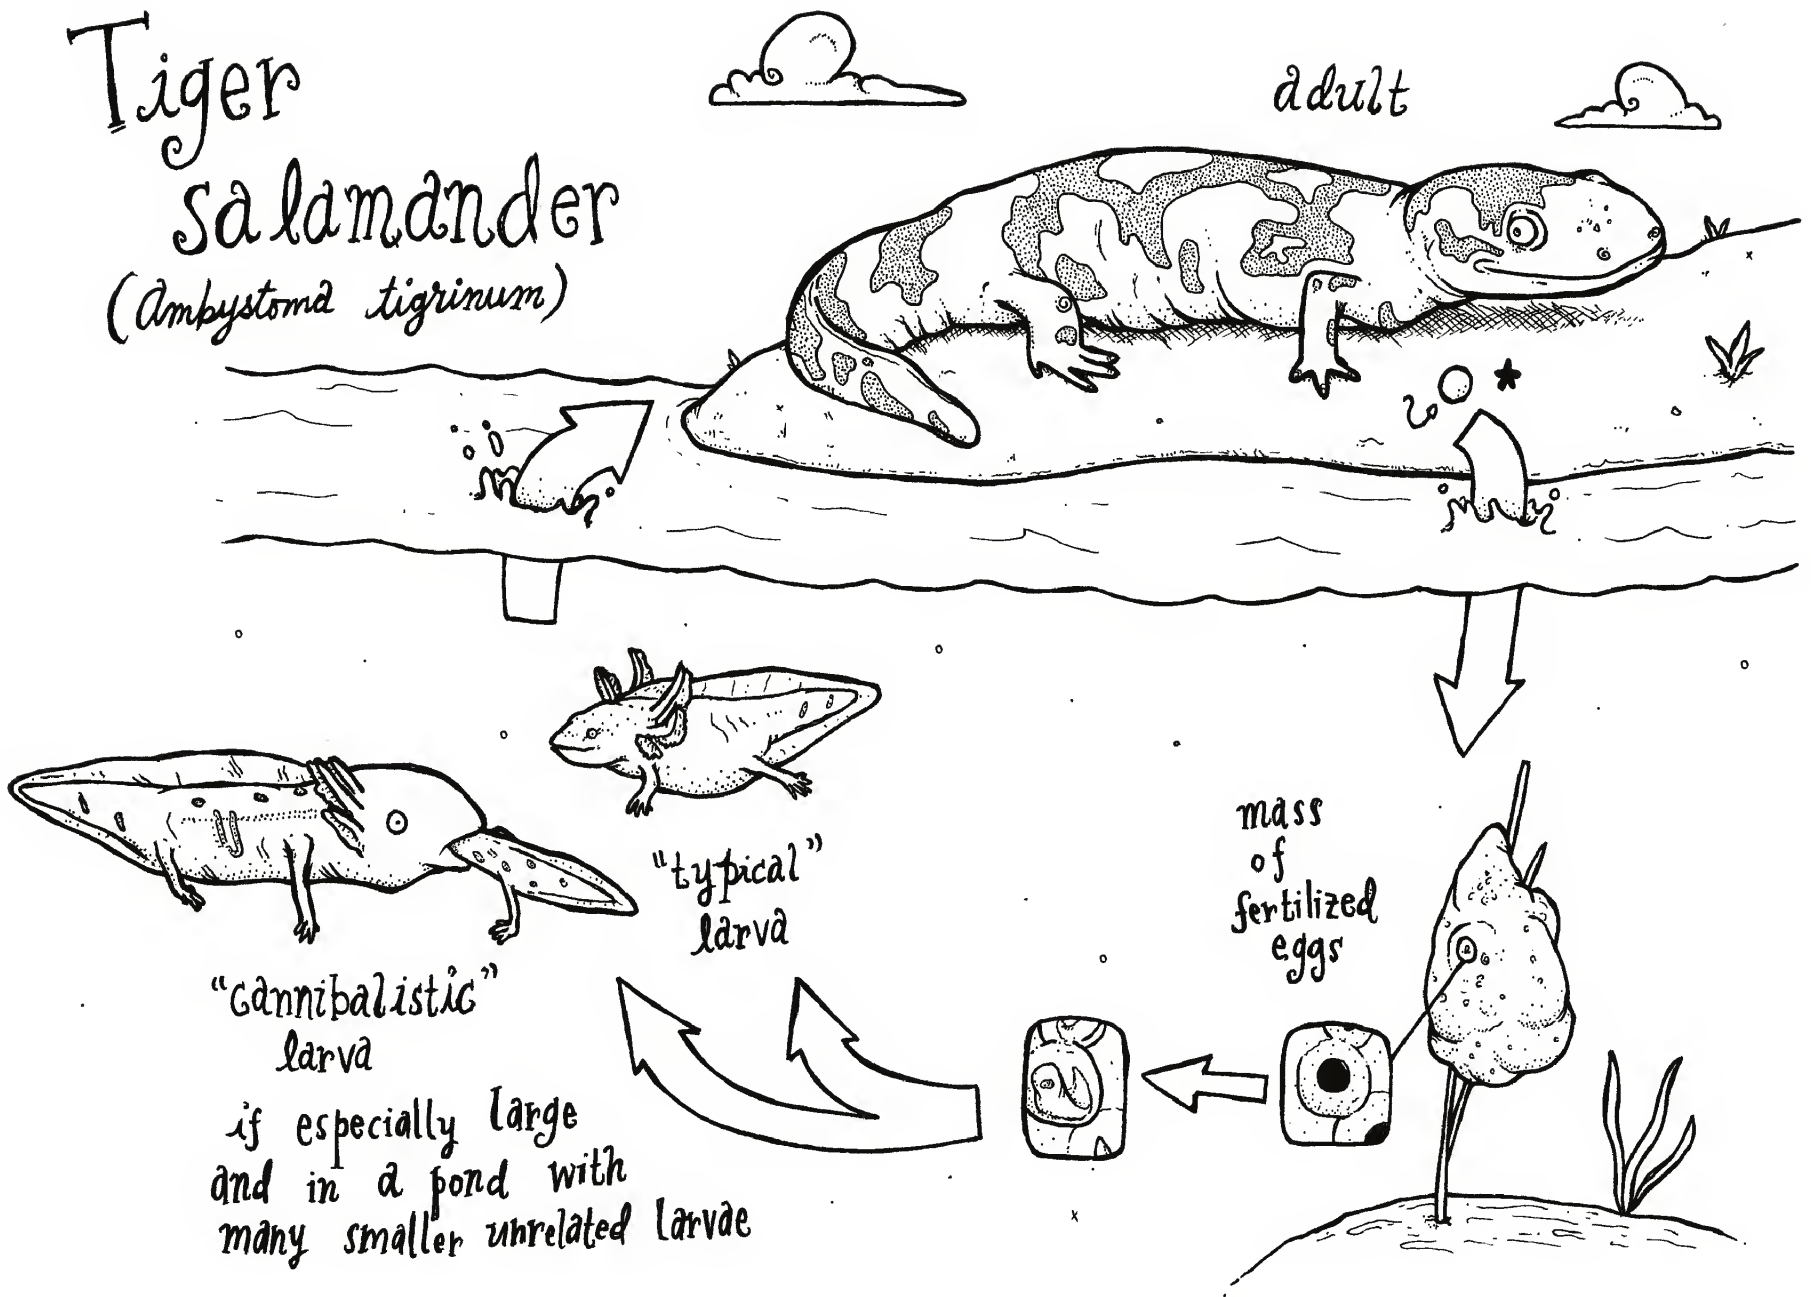 Tiger
salamander
(Ambystoma tigrinum)
adult
"typical"
larva
mass
of
fertilized
eggs
"cannibalistic"
larva
if especially large
and in a pond with
many smaller unrelated larvae